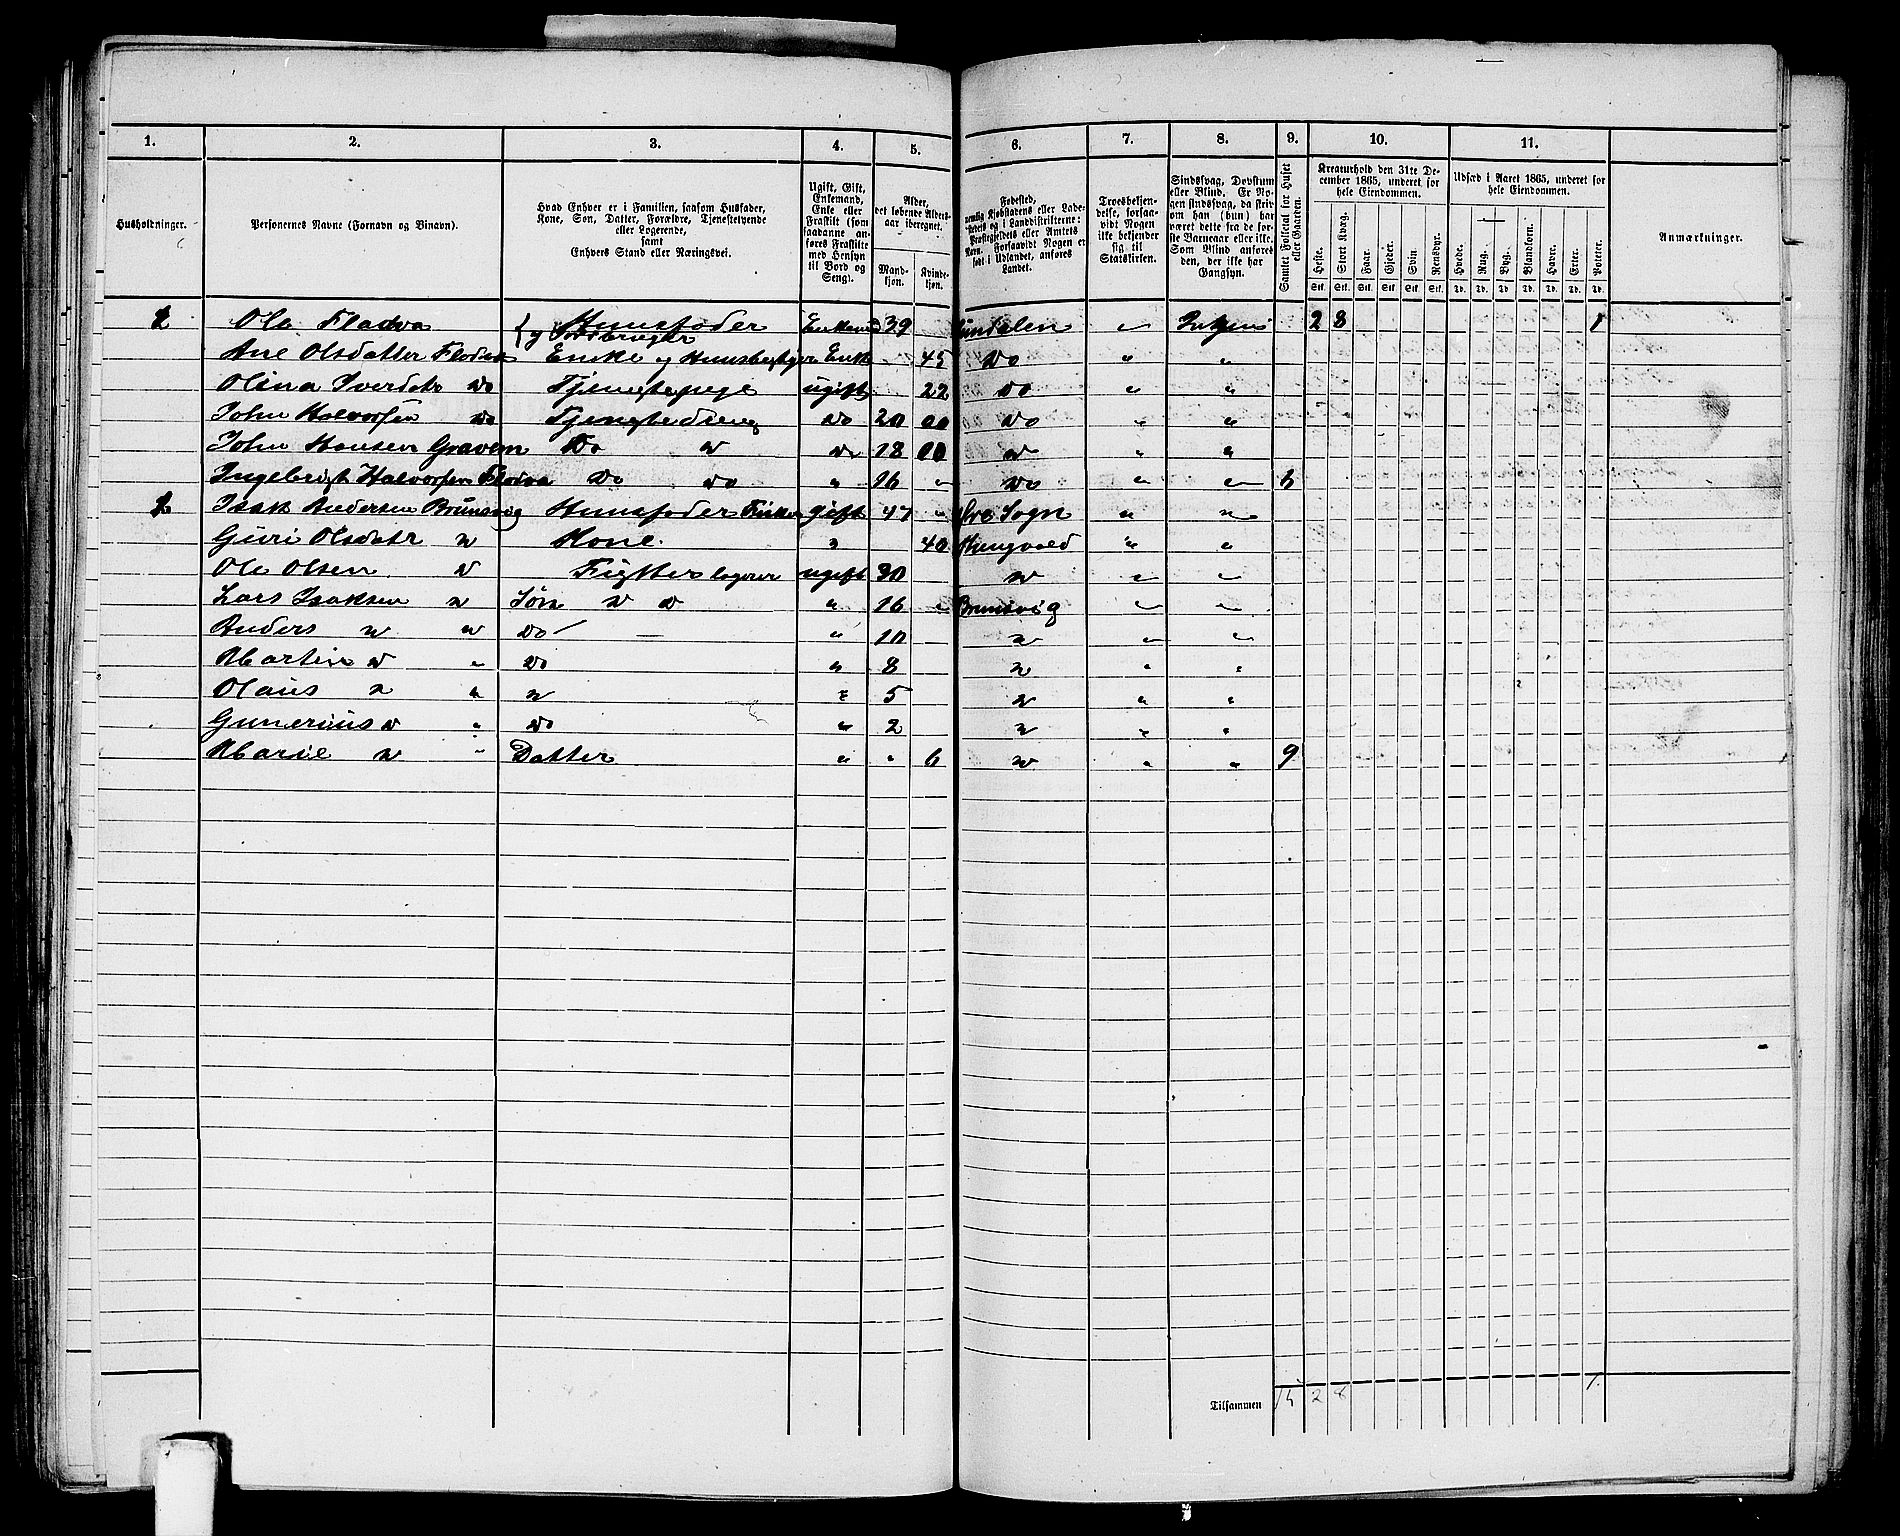 1. 2. 3. 4. 5. 6. 7. 8. 9. 10. 11.
Husholdninger.
Personernes Navne (Fornavn og Binavn).
Hvad Enhver er i Familien, saasom Husfader,
Kone, Søn, Datter, Forældre, Tjenestetyende
eller Logerende,
samt
Enhvers Stand eller Næringsvei.
Ugift, Gift,
Enkemand,
Enke eller
Fraskilt (som
saadanne an-
føres Fraskilte
med Hensyn
til Bord og
Seng).
Alder,
det løbende Alders-
aar iberegnet.
Mand-
kjøn.
Kvinde-
kjøn.
Fødested,
nemlig Kjøbstadens eller Lade-
stedets og i Landdistrikterne:
Præstegjeldets eller Amtets
Navn. Forsaavidt Nogen er
født i Udlandet, anføres
Landet.
Troesbekjen-
delse, forsaa-
vidt Nogen
ikke bekjender
sig til
Statskirken.
Sindssvag, Døvstum
eller Blind. Er No-
gen sindssvag, da skriv
om han (hun) har
været dette fra de før-
ste Barneaar eller ikke.
Som Blind anføres
den, der ikke har
Gangsyn.
Samlet Folketal for Huset
eller Gaarden.
Kreaturhold den 31te De-
cember 1865, underet for
hele Eiendommen.
Heste. Stort Kvæg. Faar Gjeder. Svin Rensdyr.
Stk. Stk. Stk. Stk. Stk. Stk.
Udsæd i Aaret 1865, underet for
hele Eiendommen.
Hvede. Rug. Byg. Blandkorn. Havre. Erter. Poteter.
Td. Td. Td. Td. Td. Td. Td.
Anmærkninger.
Ola Fladva { Huusfader Enkemd 39 Sundalen 2 8 1
og Jordbruger
Ane Olsdatter Enke og Enke 45 Do " "
Olina Iverdatr Do Tjenestepige ugift 22 Do " "
John Halvorsen Do Tjenestedreng Do 20 Do " "
John Hansen Gravem Do 18 " "
Ingebrigt Halvorsen Flodva Do Do " 16 Do " 6
Isak Andersen Brunsvig Huusfader gift 47 Sogn "
Guri Olsdatr Kone 40 " "
Ole Olsen logerer ugift 30
Lars Isaksen Søn " 16 Brunsvig
Anders Do " 10
Martin " Do " 8 " "
Olaus " 5 " "
Gunerius " Do " 2 " "
Marie " Datter " " 6 " " 9
Tilsammen 15 2 8 1